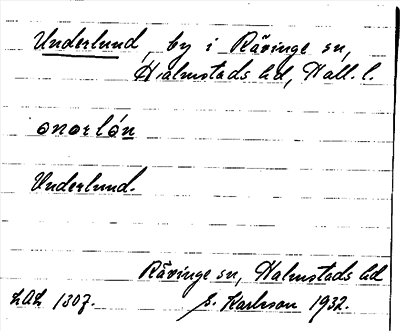 Underlund, by i Rävinge sn,
Halmstads hd, Hall. l.
onorlón
Underlund.
Rävinge sn, Halmstads hd
LAL 1307. E. Karlsson 1932.